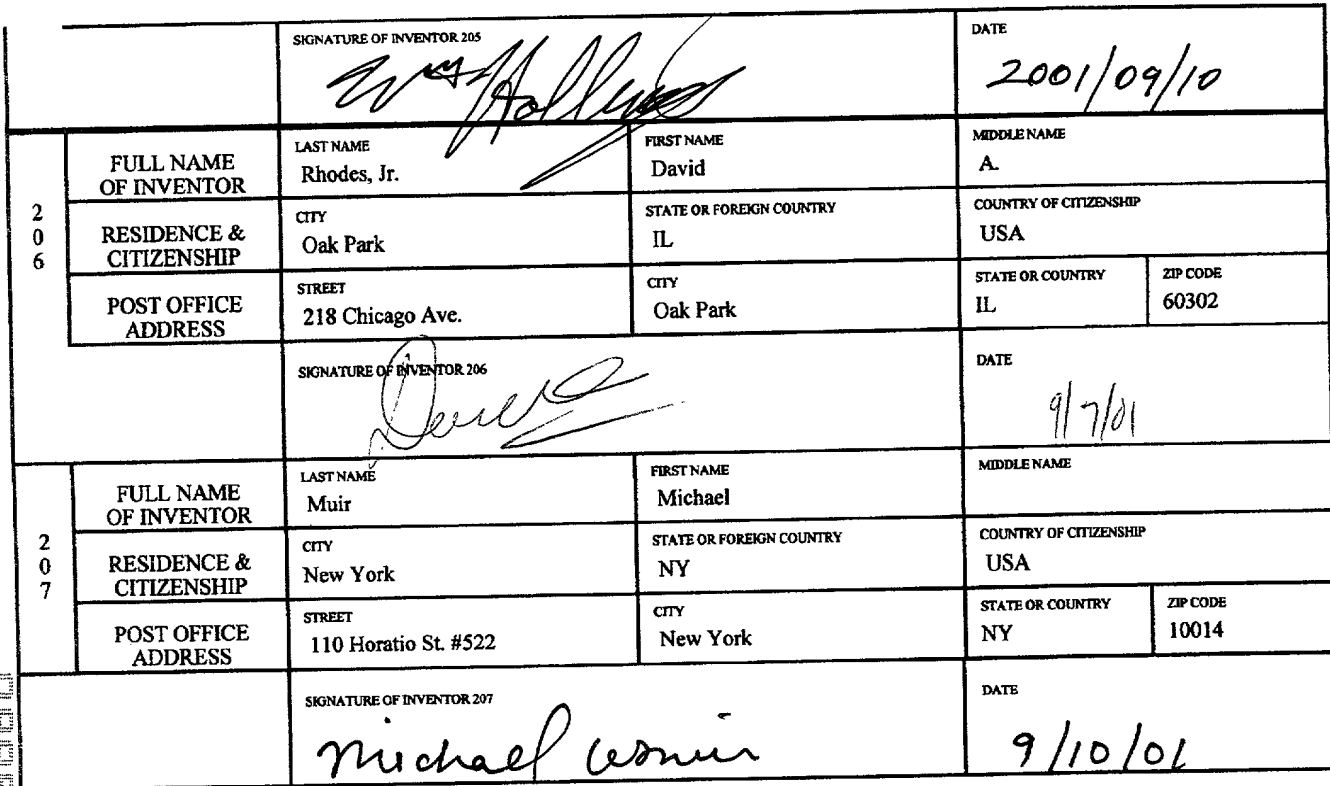 SIGNATURE OF INVENTOR 205
DATE
2001/09/10
206
FULL NAME OF INVENTOR
LAST NAME
Rhodes, Jr.
FIRST NAME
David
MIDDLE NAME
A.
RESIDENCE & CITIZENSHIP
CITY
Oak Park
STATE OR FOREIGN COUNTRY
IL
COUNTRY OF CITIZENSHIP
USA
POST OFFICE ADDRESS
STREET
218 Chicago Ave.
CITY
Oak Park
STATE OR COUNTRY
IL
ZIP CODE
60302
SIGNATURE OF INVENTOR 206
DATE
9/7/01
207
FULL NAME OF INVENTOR
LAST NAME
Muir
FIRST NAME
Michael
MIDDLE NAME
RESIDENCE & CITIZENSHIP
CITY
New York
STATE OR FOREIGN COUNTRY
NY
COUNTRY OF CITIZENSHIP
USA
POST OFFICE ADDRESS
STREET
110 Horatio St. #522
CITY
New York
STATE OR COUNTRY
NY
ZIP CODE
10014
SIGNATURE OF INVENTOR 207
Michael
DATE
9/10/01